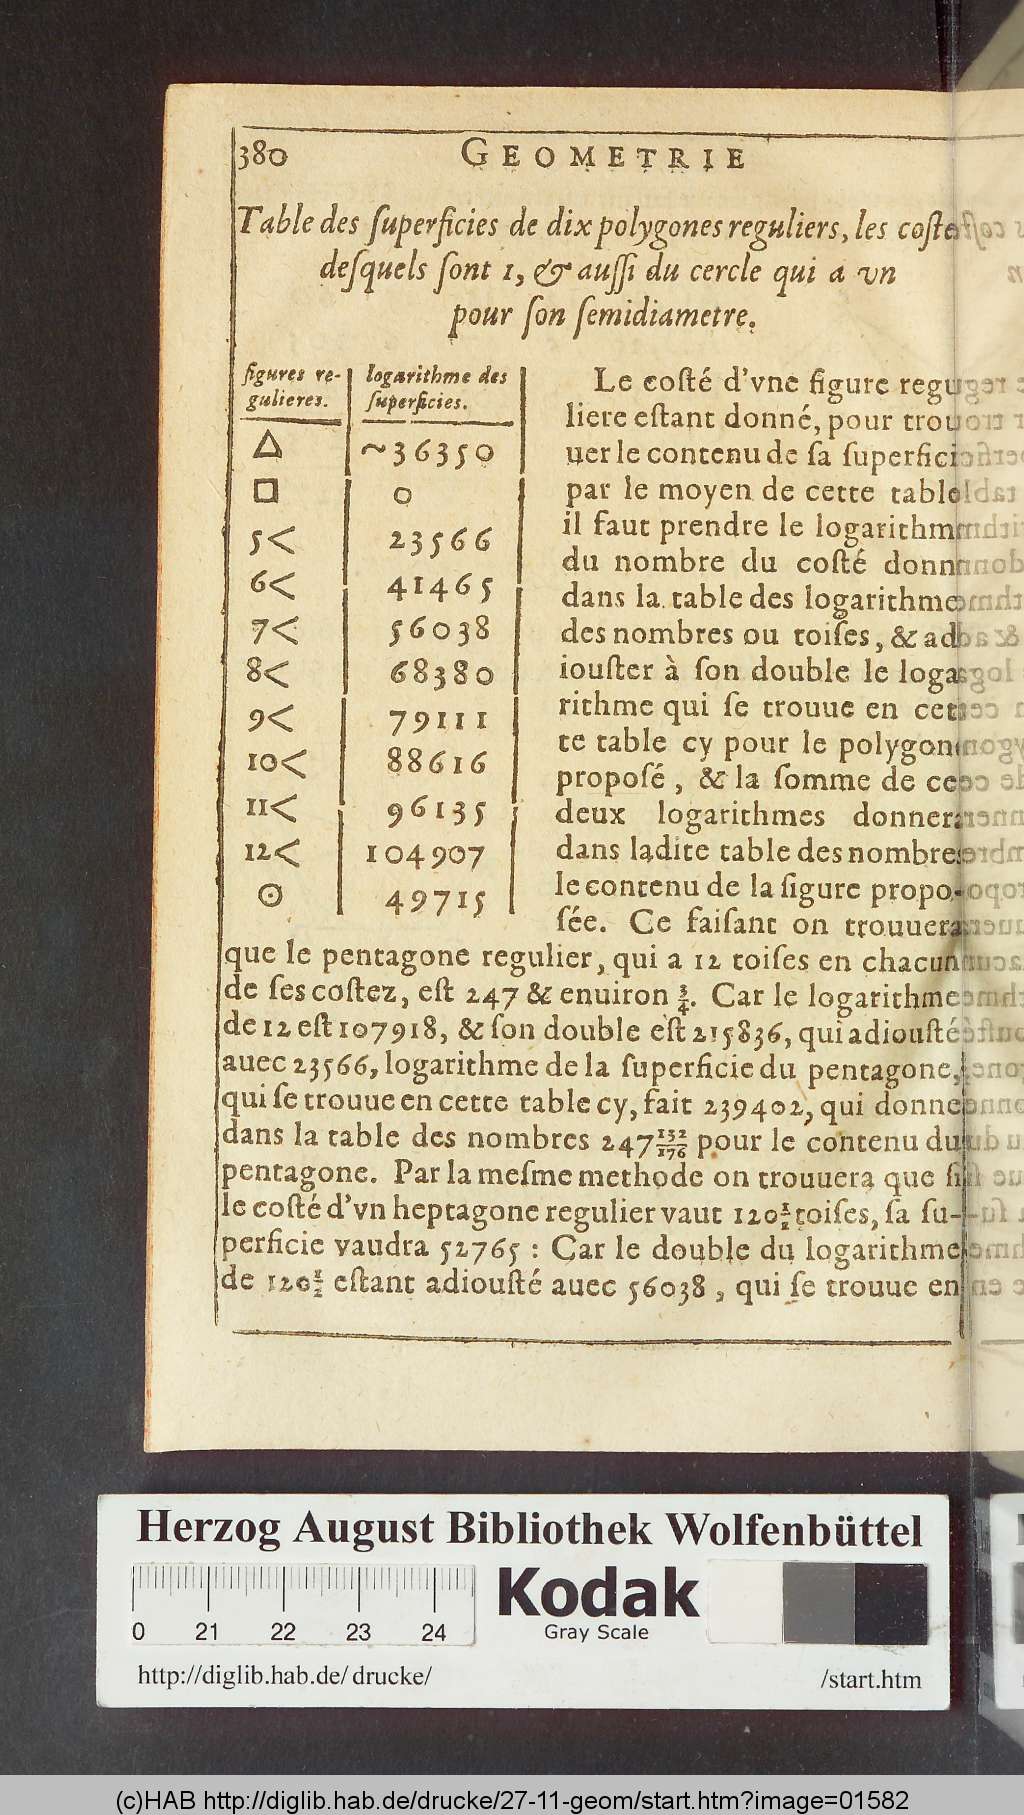 380 GEOMETRIE
Table des ſuperficies de dix polygones reguliers, les coſte
deſquels ſont 1, & auſſi du cercle qui a vn
pour ſon ſemidiametre.
figures re- | logarithme des
gulieres. | ſuperficies.
△ | ~36350
□ | 0
5< | 23566
6< | 41465
7< | 56038
8< | 68380
9< | 79111
10< | 88616
11< | 96135
12< | 104907
☉ | 49715
Le coſté d'vne figure regu
liere eſtant donné, pour trou
uer le contenu de ſa ſuperfici
par le moyen de cette table
il faut prendre le logarithm
du nombre du coſté donn
dans la table des logarithme
des nombres ou toiſes, & ad
iouſter à ſon double le loga
rithme qui ſe trouue en cet
te table cy pour le polygon
propoſé, & la ſomme de ce
deux logarithmes donner
dans ladite table des nombre
le contenu de la figure propo-
ſée. Ce faiſant on trouuera
que le pentagone regulier, qui a 12 toiſes en chacun
de ſes coſtez, eſt 247 & enuiron ¾. Car le logarithme
de 12 eſt 107918, & ſon double eſt 215836, qui adiouſté
auec 23566, logarithme de la ſuperficie du pentagone,
qui ſe trouue en cette table cy, fait 239402, qui donne
dans la table des nombres 247 132/176 pour le contenu du
pentagone. Par la meſme methode on trouuera que ſi
le coſté d'vn heptagone regulier vaut 120½ toiſes, ſa ſu-
perficie vaudra 52765 : Car le double du logarithme
de 120½ eſtant adiouſté auec 56038, qui ſe trouue en
Herzog August Bibliothek Wolfenbüttel
0 21 22 23 24
Kodak
Gray Scale
http://diglib.hab.de/drucke/ /start.htm
(c)HAB http://diglib.hab.de/drucke/27-11-geom/start.htm?image=01582